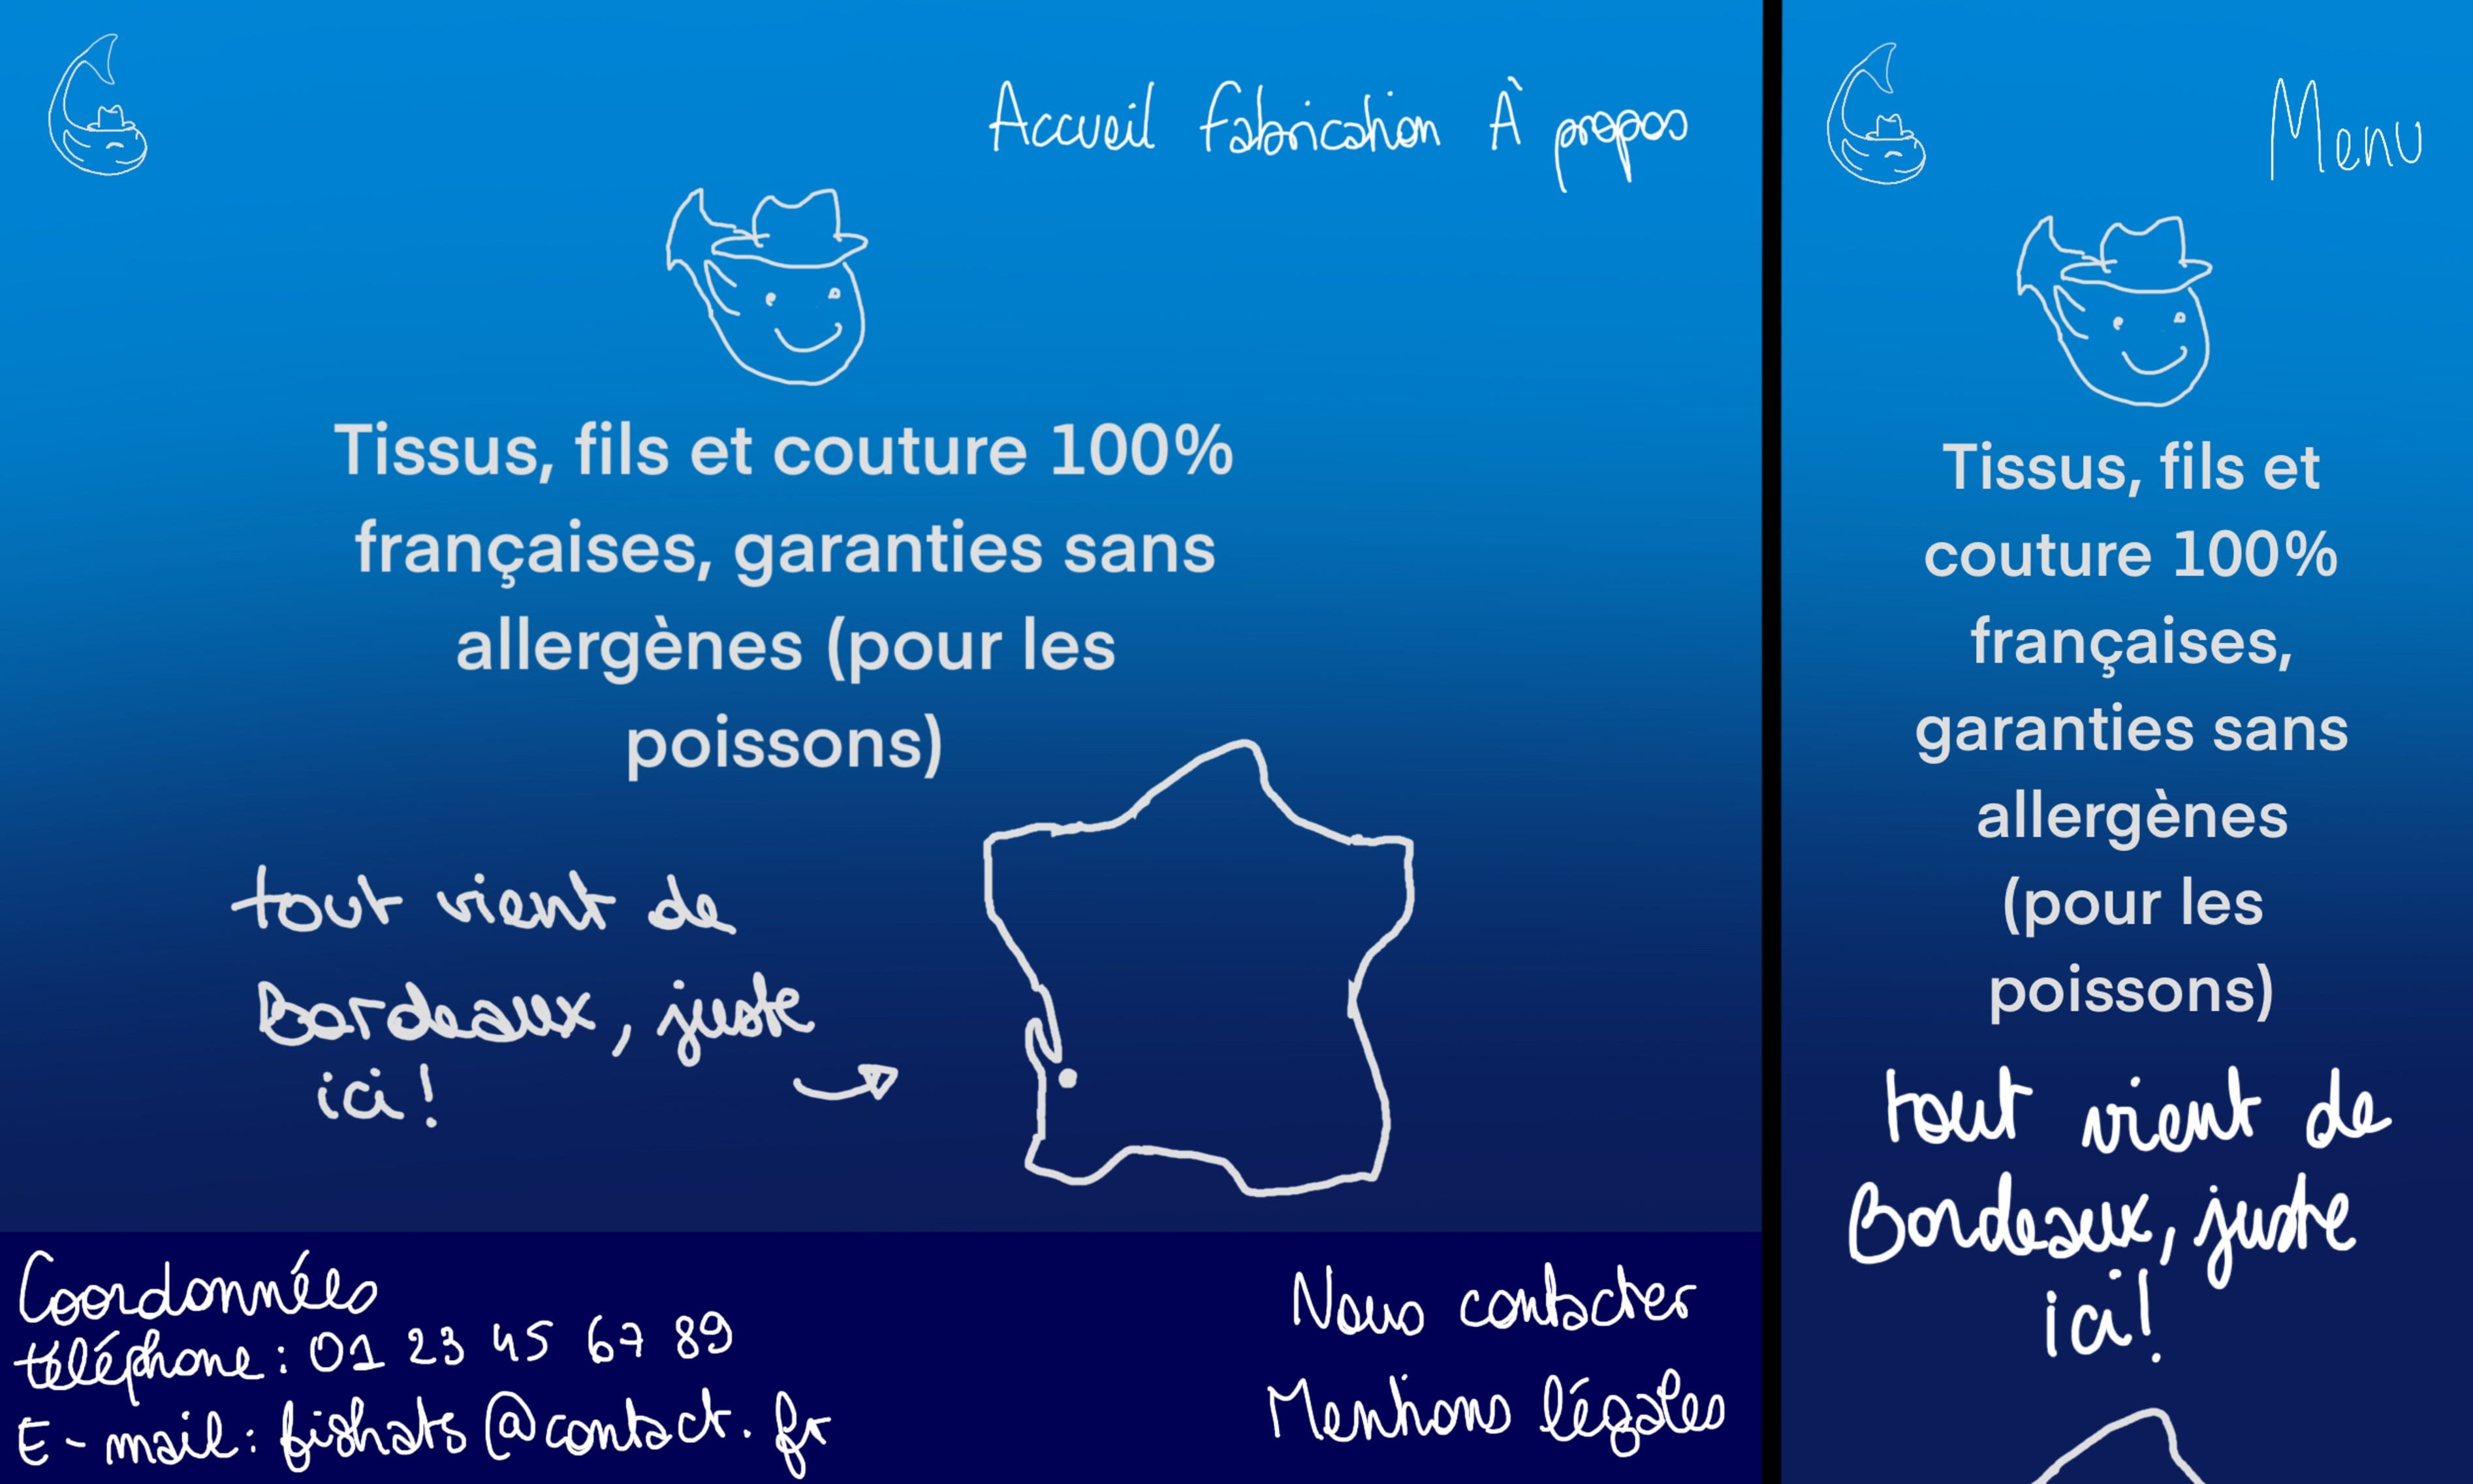 Accueil Fabrication À propos
Tissus, fils et couture 100%
françaises, garanties sans
allergènes (pour les
poissons)
tout vient de
Bordeaux, juste
ici!
Coordonnées
téléphone: 01 23 45 67 89
E-mail: fishats@contact.fr
Nous contacter
Mentions légales
Menu
Tissus, fils et
couture 100%
françaises,
garanties sans
allergènes
(pour les
poissons)
tout vient de
Bordeaux, juste
ici!